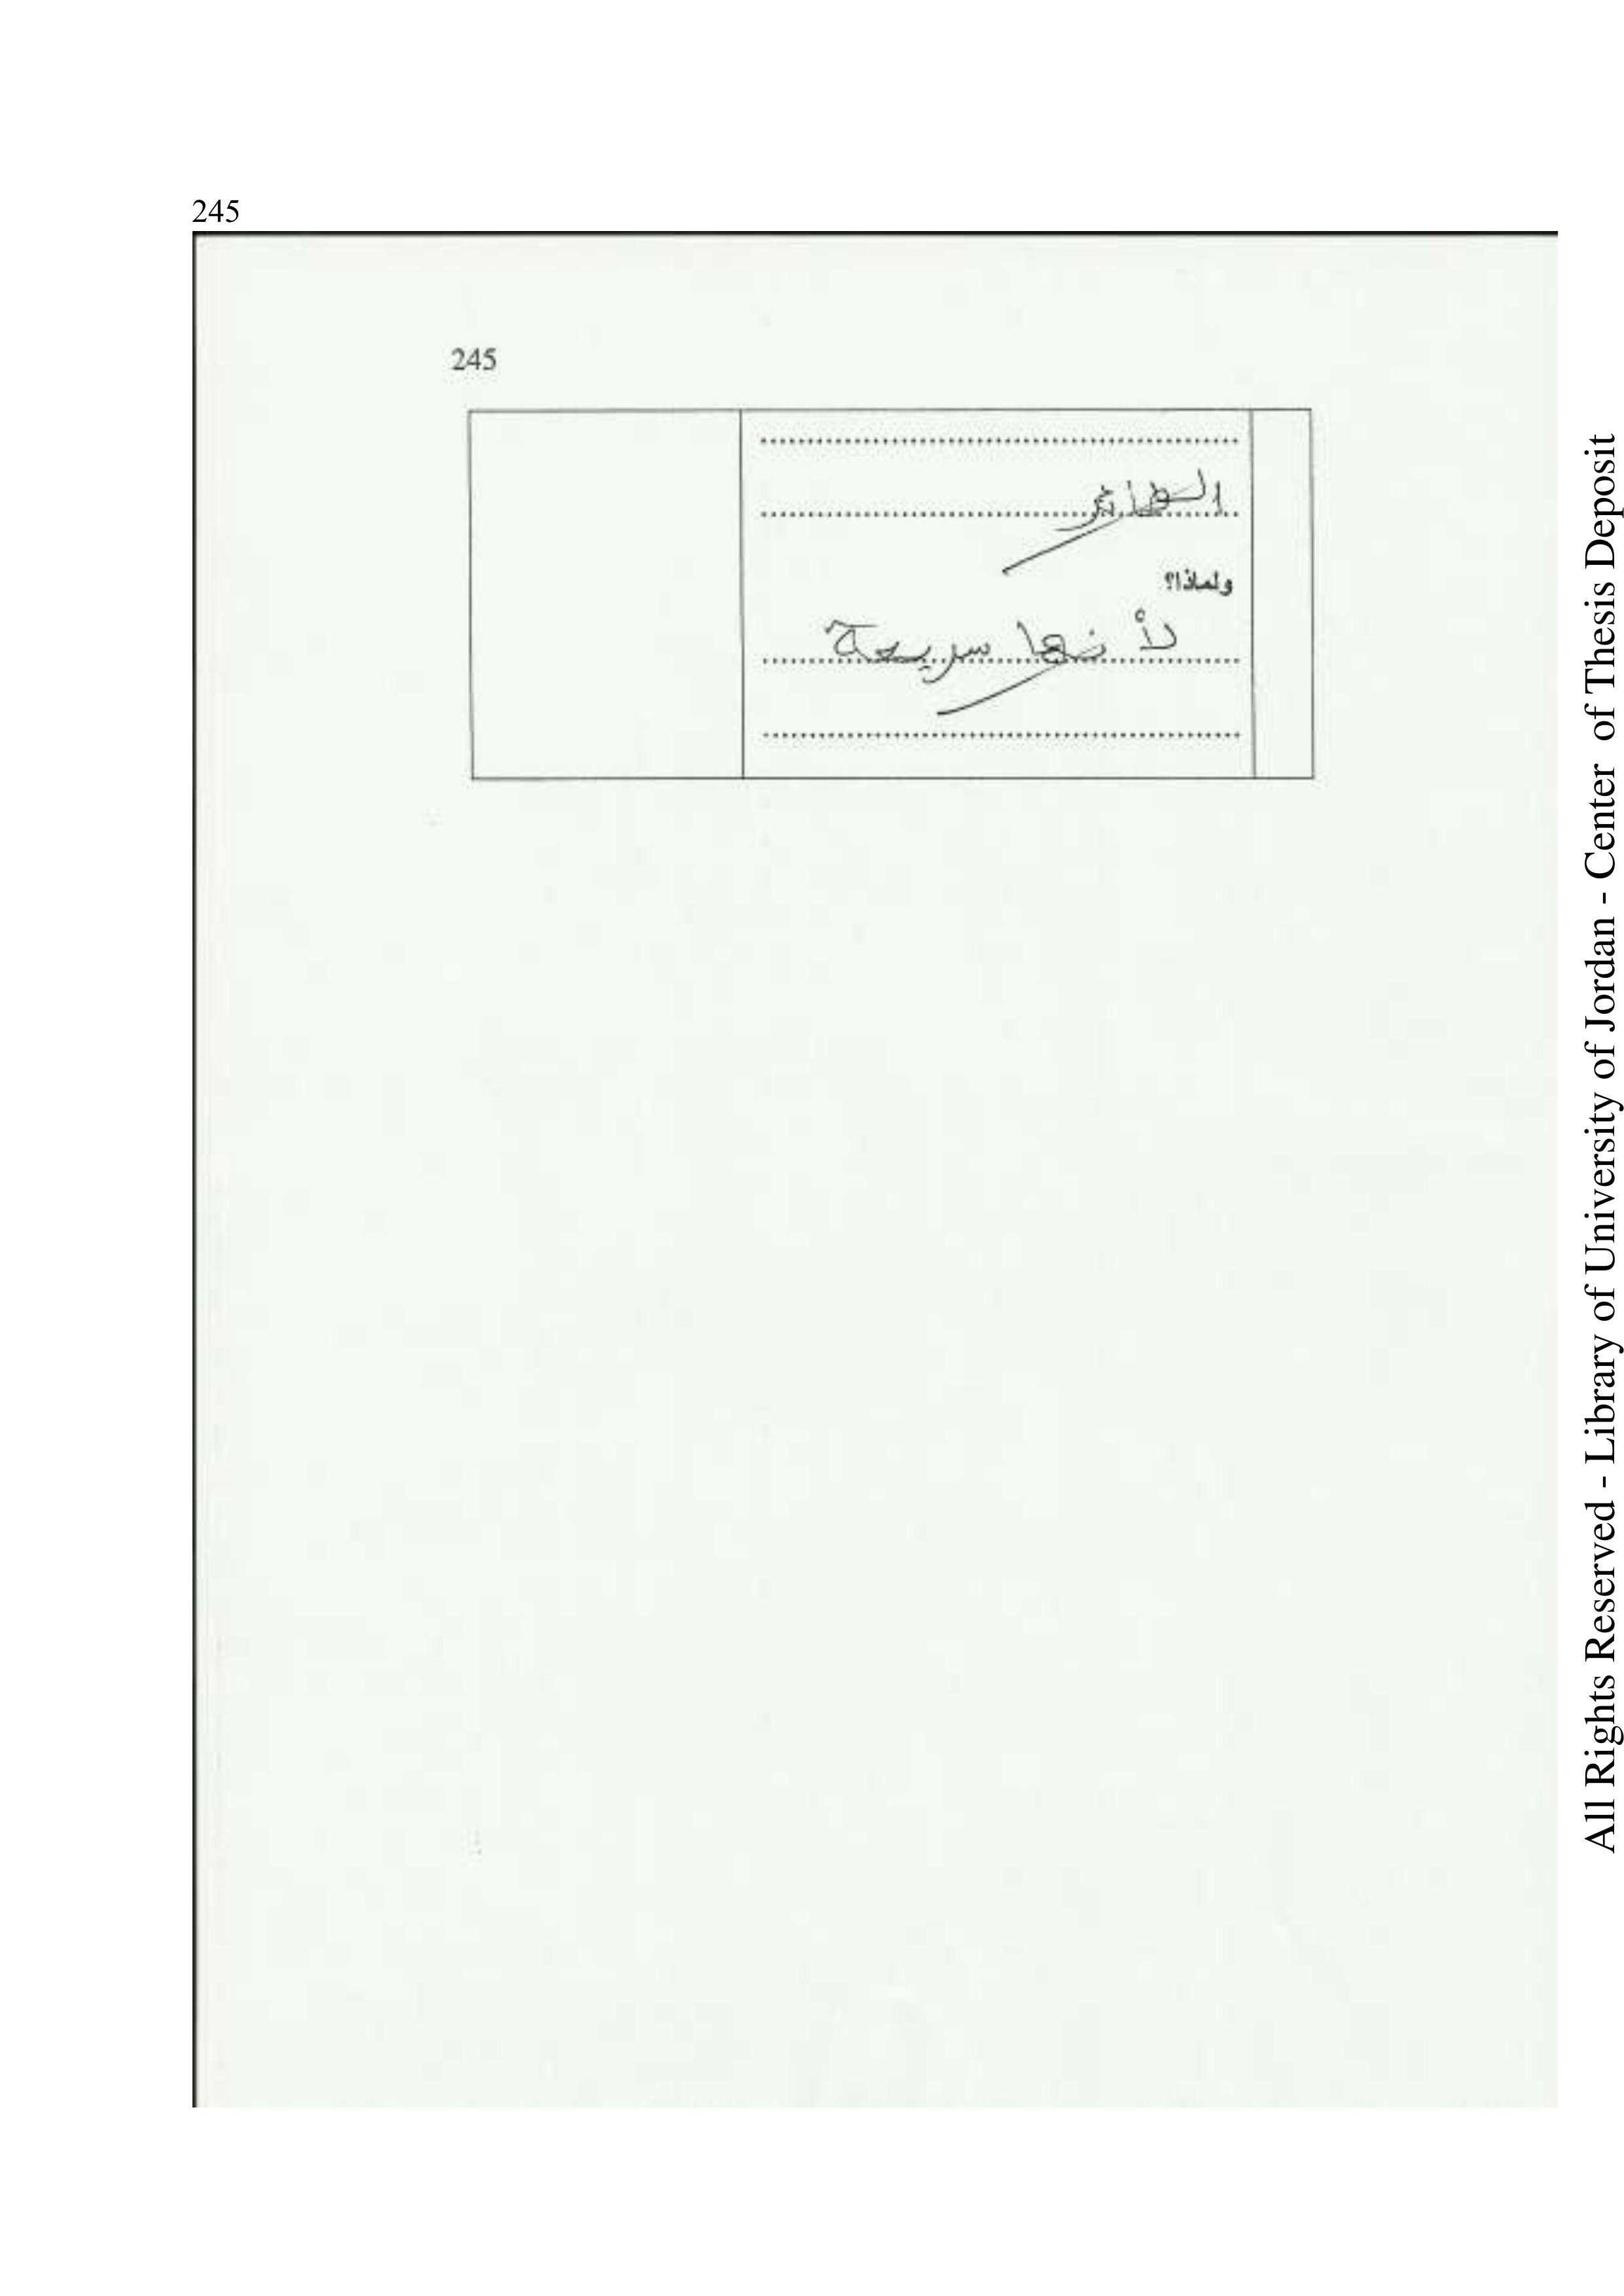 245
245
الطائر
ولماذا؟
لأنها سريعة
All Rights Reserved - Library of University of Jordan - Center of Thesis Deposit